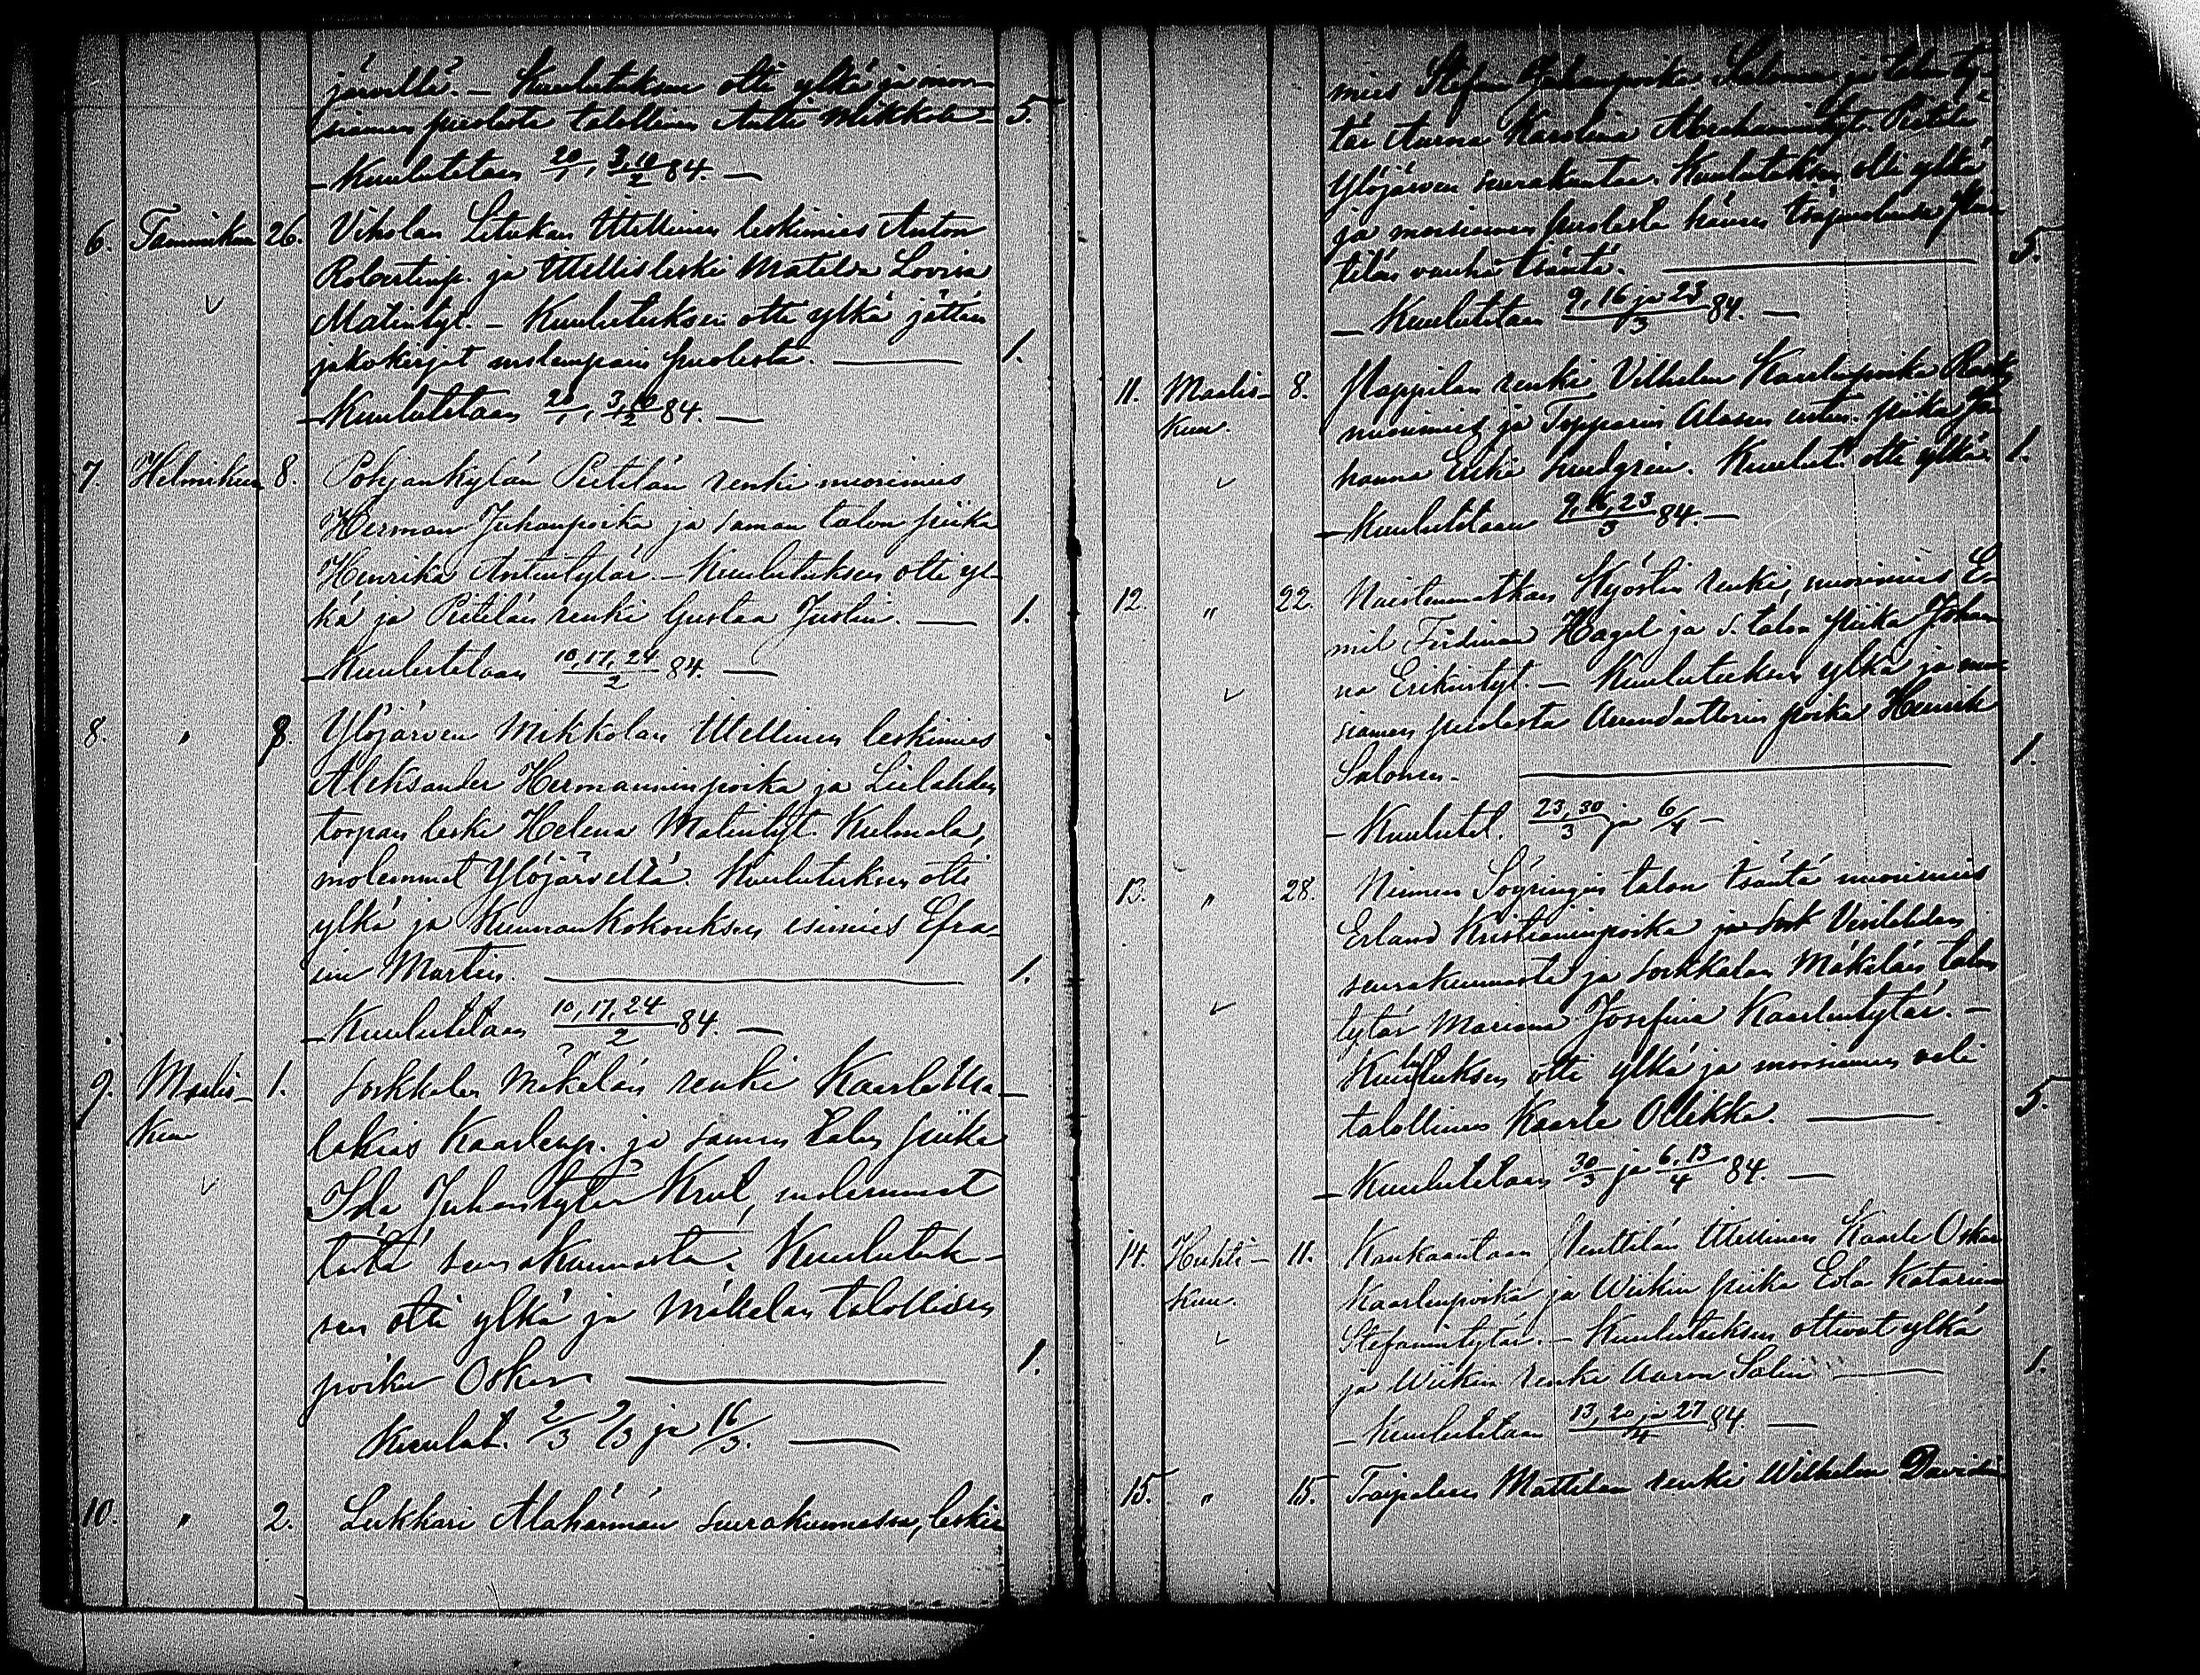 järvellä. – Kuulutuksen otti ylkä ja mor-
siamen puolesta talollinen Antti Mikkola – 5.
– Kuulutetaan 20/1, 3,10/2 84. –
6. Tammikuu 26. Viholan Litukan Itsellinen leskimies Anton
Robertinp. ja Itsellisleski Matilda Lovisa
Matintyt. – Kuulutuksen otti ylkä jättäen
jakokirjat molempain puolesta. – 1.
– Kuulutetaan 20/1, 3,10/2 84. –
7. Helmikuu 8. Pohjankylän Pietilän renki nuorimies
Herman Juhanpoika ja saman talon piika
Henrika Antintytär. – Kuulutuksen otti yl-
kä ja Pietilän renki Gustaa Juslin. – 1.
– Kuulutetaan 10,17,24/2 84. –
8. " 8. Ylöjärven Mikkolan Itsellinen leskimies
Aleksander Hermanninpoika ja Lielahden
torpan leski Helena Matintyt. Kulmala,
molemmat Ylöjärveltä. Kuulutuksen otti
ylkä ja Kunnankokouksen esimies Efra-
im Martin. – 1.
– Kuulutetaan 10,17,24/2 84. –
9. Maalis- 1. Sorkkalan Mäkelän renki Kaarle
kuu Kaarlenp. ja samen talon piika
Ida Juhantytär Krul, molemmat
tästä seurakunnasta. Kuulutuk-
sen otti ylkä ja Mäkelän talollisen
poika Oskar – 1.
Kuulut. 2/3 9/3 ja 16/3. –
10. " 2. Lukkari Alahärmän seurakunnassa, leski-
mies Stefan Juhanpoika Salonen ja talonty-
tär Aurora Karolina Abrahamintyt. Pietilä
Ylöjärven seurakuntaa. Kuulutuksen otti ylkä
ja morsiamen puolesta hänen isäpuolensa Pie-
tilän vanha isäntä. – 5.
– Kuulutetaan 9,16 ja 23/3 84. –
11. Maalis- 8. Nappilan renki Vilhelm Kaarlenpoika
kuu. nuorimies ja Topparin Alasen entin. piika Jo-
hanna Erika Lundgrén. Kuulut. otti ylkä 1.
– Kuulutetaan 9,16,23/3 84. –
12. " 22. Naistenmatkan Kyöstin renki, nuorimies E-
mil Ferdinan Hagel ja s. talon piika Johan-
na Erikintyt. – Kuulutuksen ylkä ja mor-
siamen puolesta Arendaattorin poika Henrik
Salonen. – 1.
– Kuulutet. 23,30/3 ja 6/4 –
13. " 28. Niemen Söyringin talon isäntä nuorimies
Erland Kristianinpoika Vesilahden
seurakunnasta ja Sorkkalan Mäkelän talon
tytär Mariana Josefina Kaarlentytär. –
Kuulutuksen otti ylkä ja morsiamen veli
talollinen Kaarle Ollikka. – 5.
– Kuulutetaan 30/3 ja 6,13/4 84. –
14. Huhti- 11. Kankaantaan Penttilän Itsellinen Kaarle Oskar
kuu. Kaarlenpoika ja Wiikin piika Eva Katarina
Stefanintytär. – Kuulutuksen ottivat ylkä
ja Wiikin renki Aaron Salin – 1.
– Kuulutetaan 13,20 ja 27/4 84. –
15. " 15. Taipaleen Mattilan renki Wilhelm Davidin